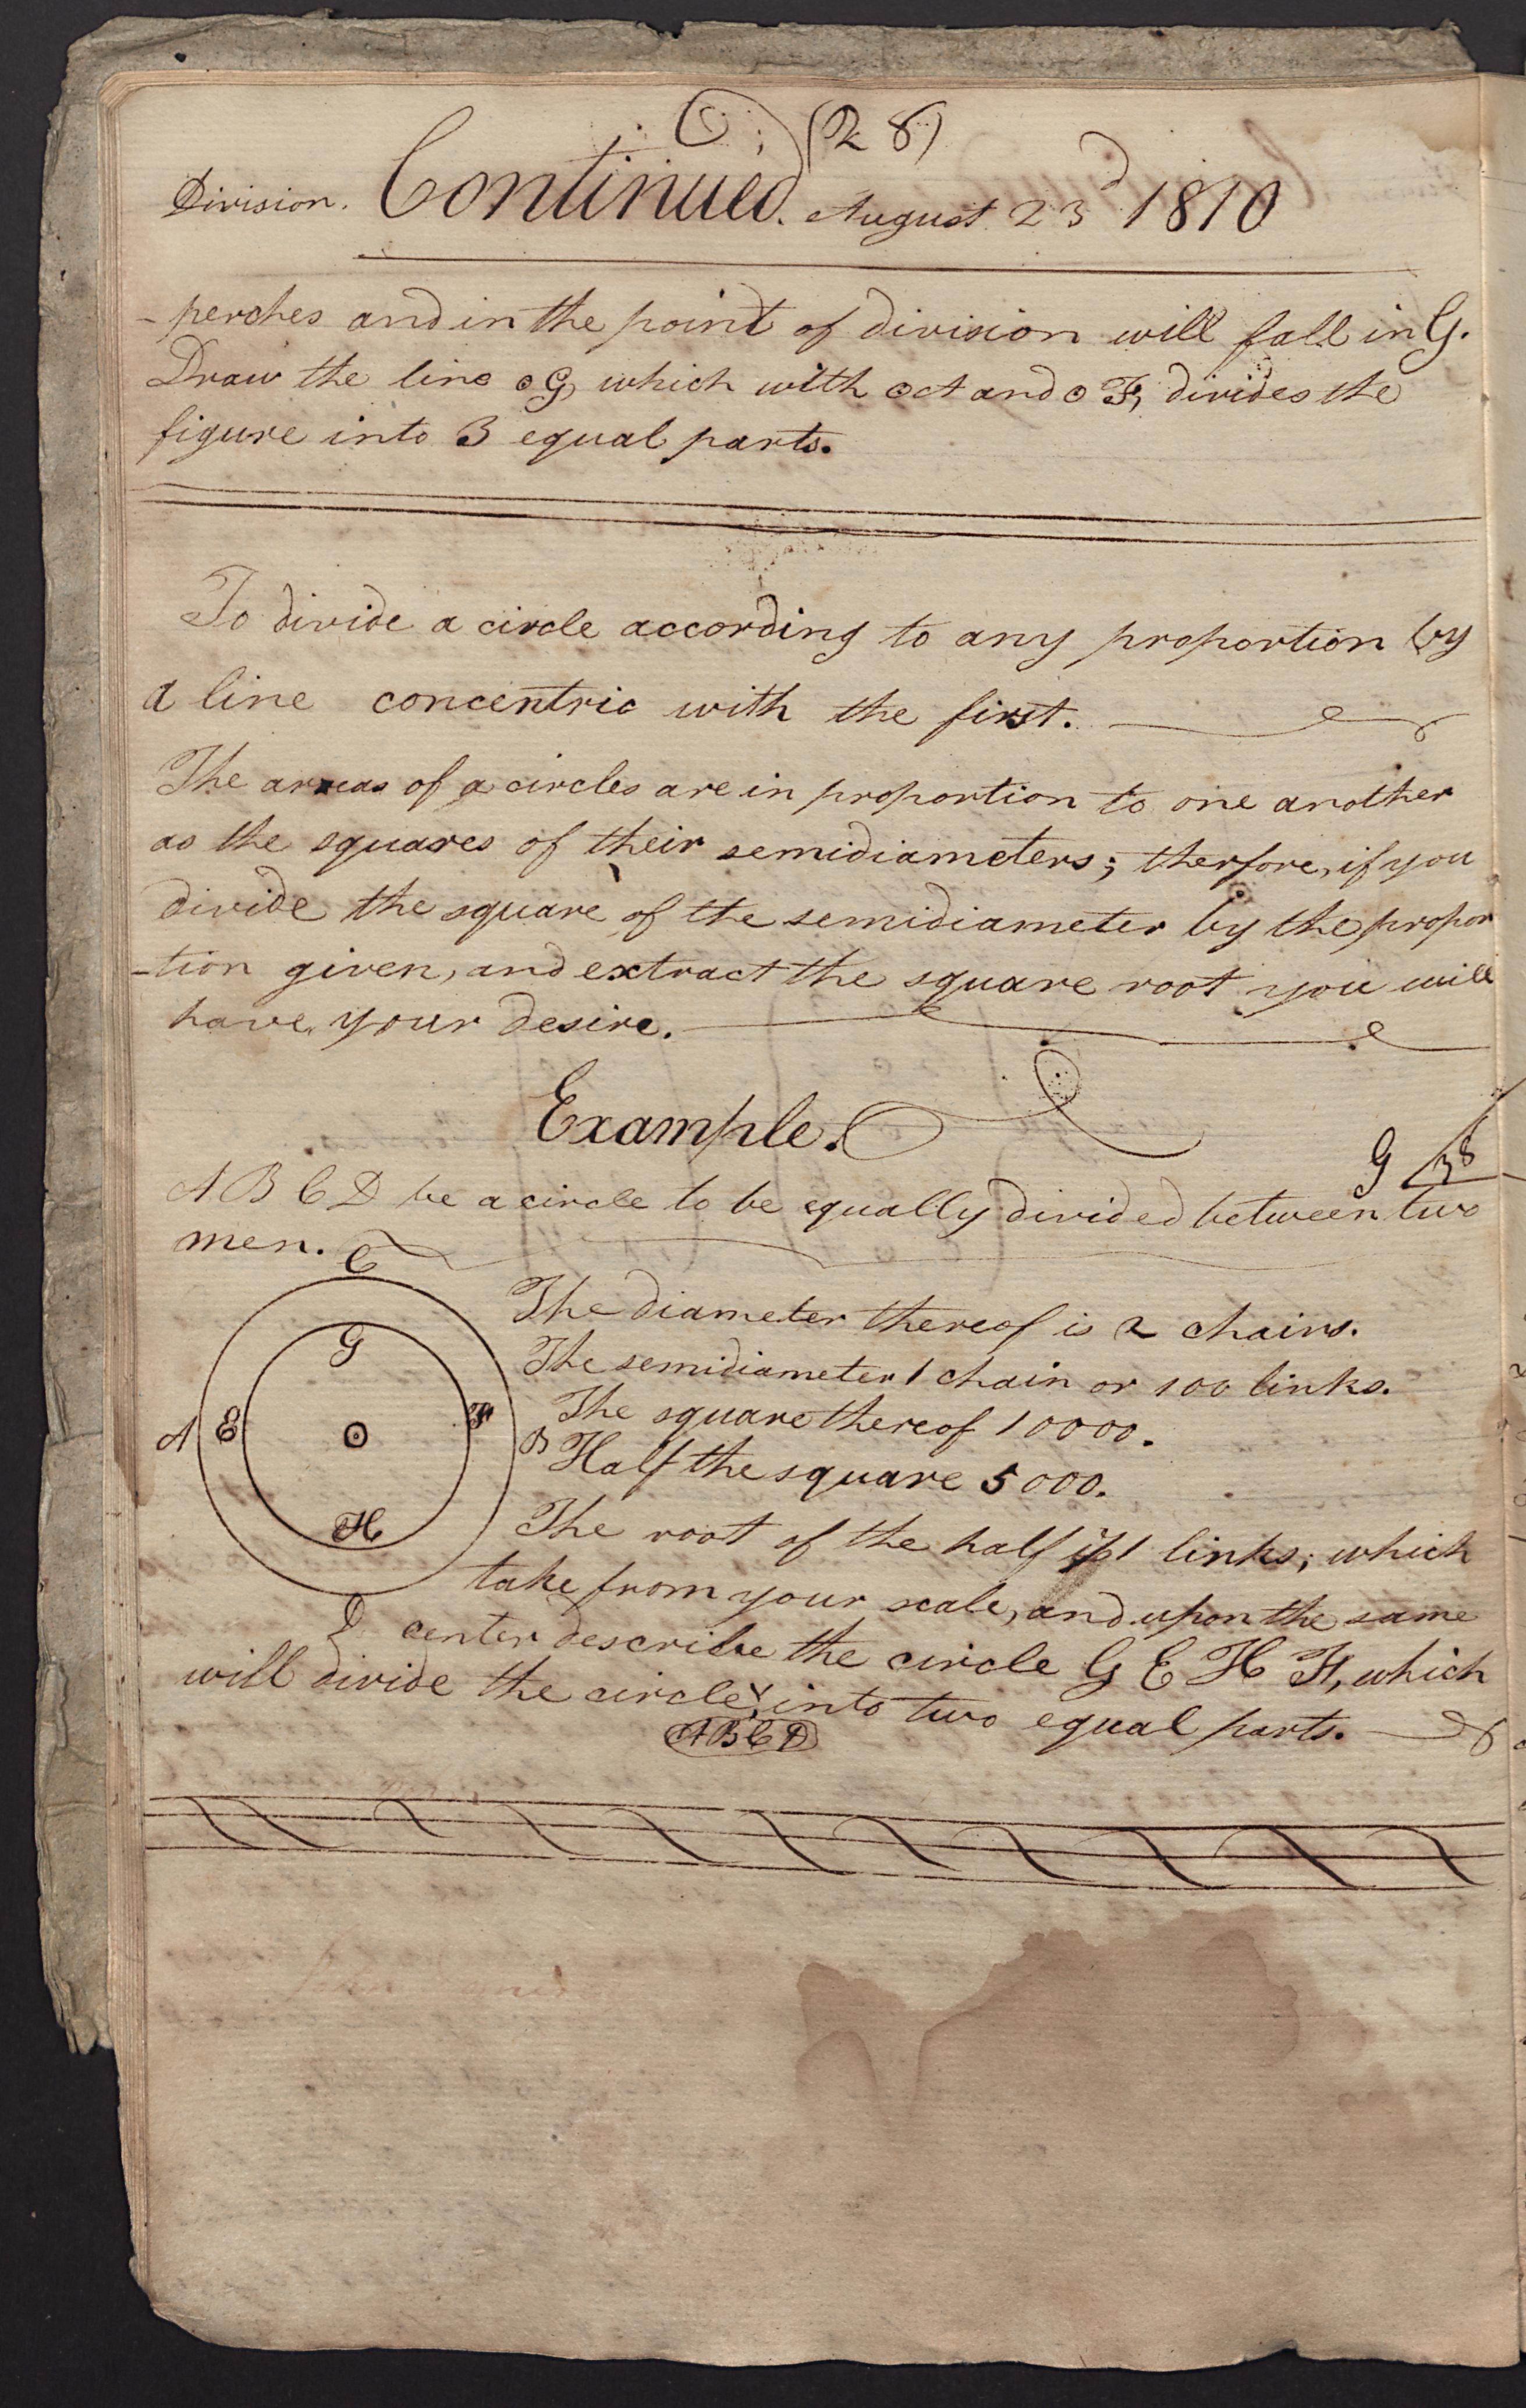 (28)
Division. Continued. August 23d 1810
- perches and in the point of division will fall in G.
Draw the line ⊙G, which with ⊙A and ⊙F, divides the
figure into 3 equal parts.
To divide a circle according to any proportion by
a line concentric with the first.
The areas of a circles are in proportion to one another
as the squares of their semidiameters; therfore, if you
divide the square of the semidiameter by the propor
-tion given, and extract the square root you will
have your desire.
Example.
G 38
A B C D be a circle to be equally divided between two
men.
C
The diameter thereof is 2 chains.
G
The semidiameter 1 chain or 100 links.
The square thereof 10000.
A E ⊙ F B
Half the square 5000.
H
The root of the half is 71 links; which
take from your scale, and upon the same
D center describe the circle G E H F, which
will divide the circle ABCD into two equal parts.